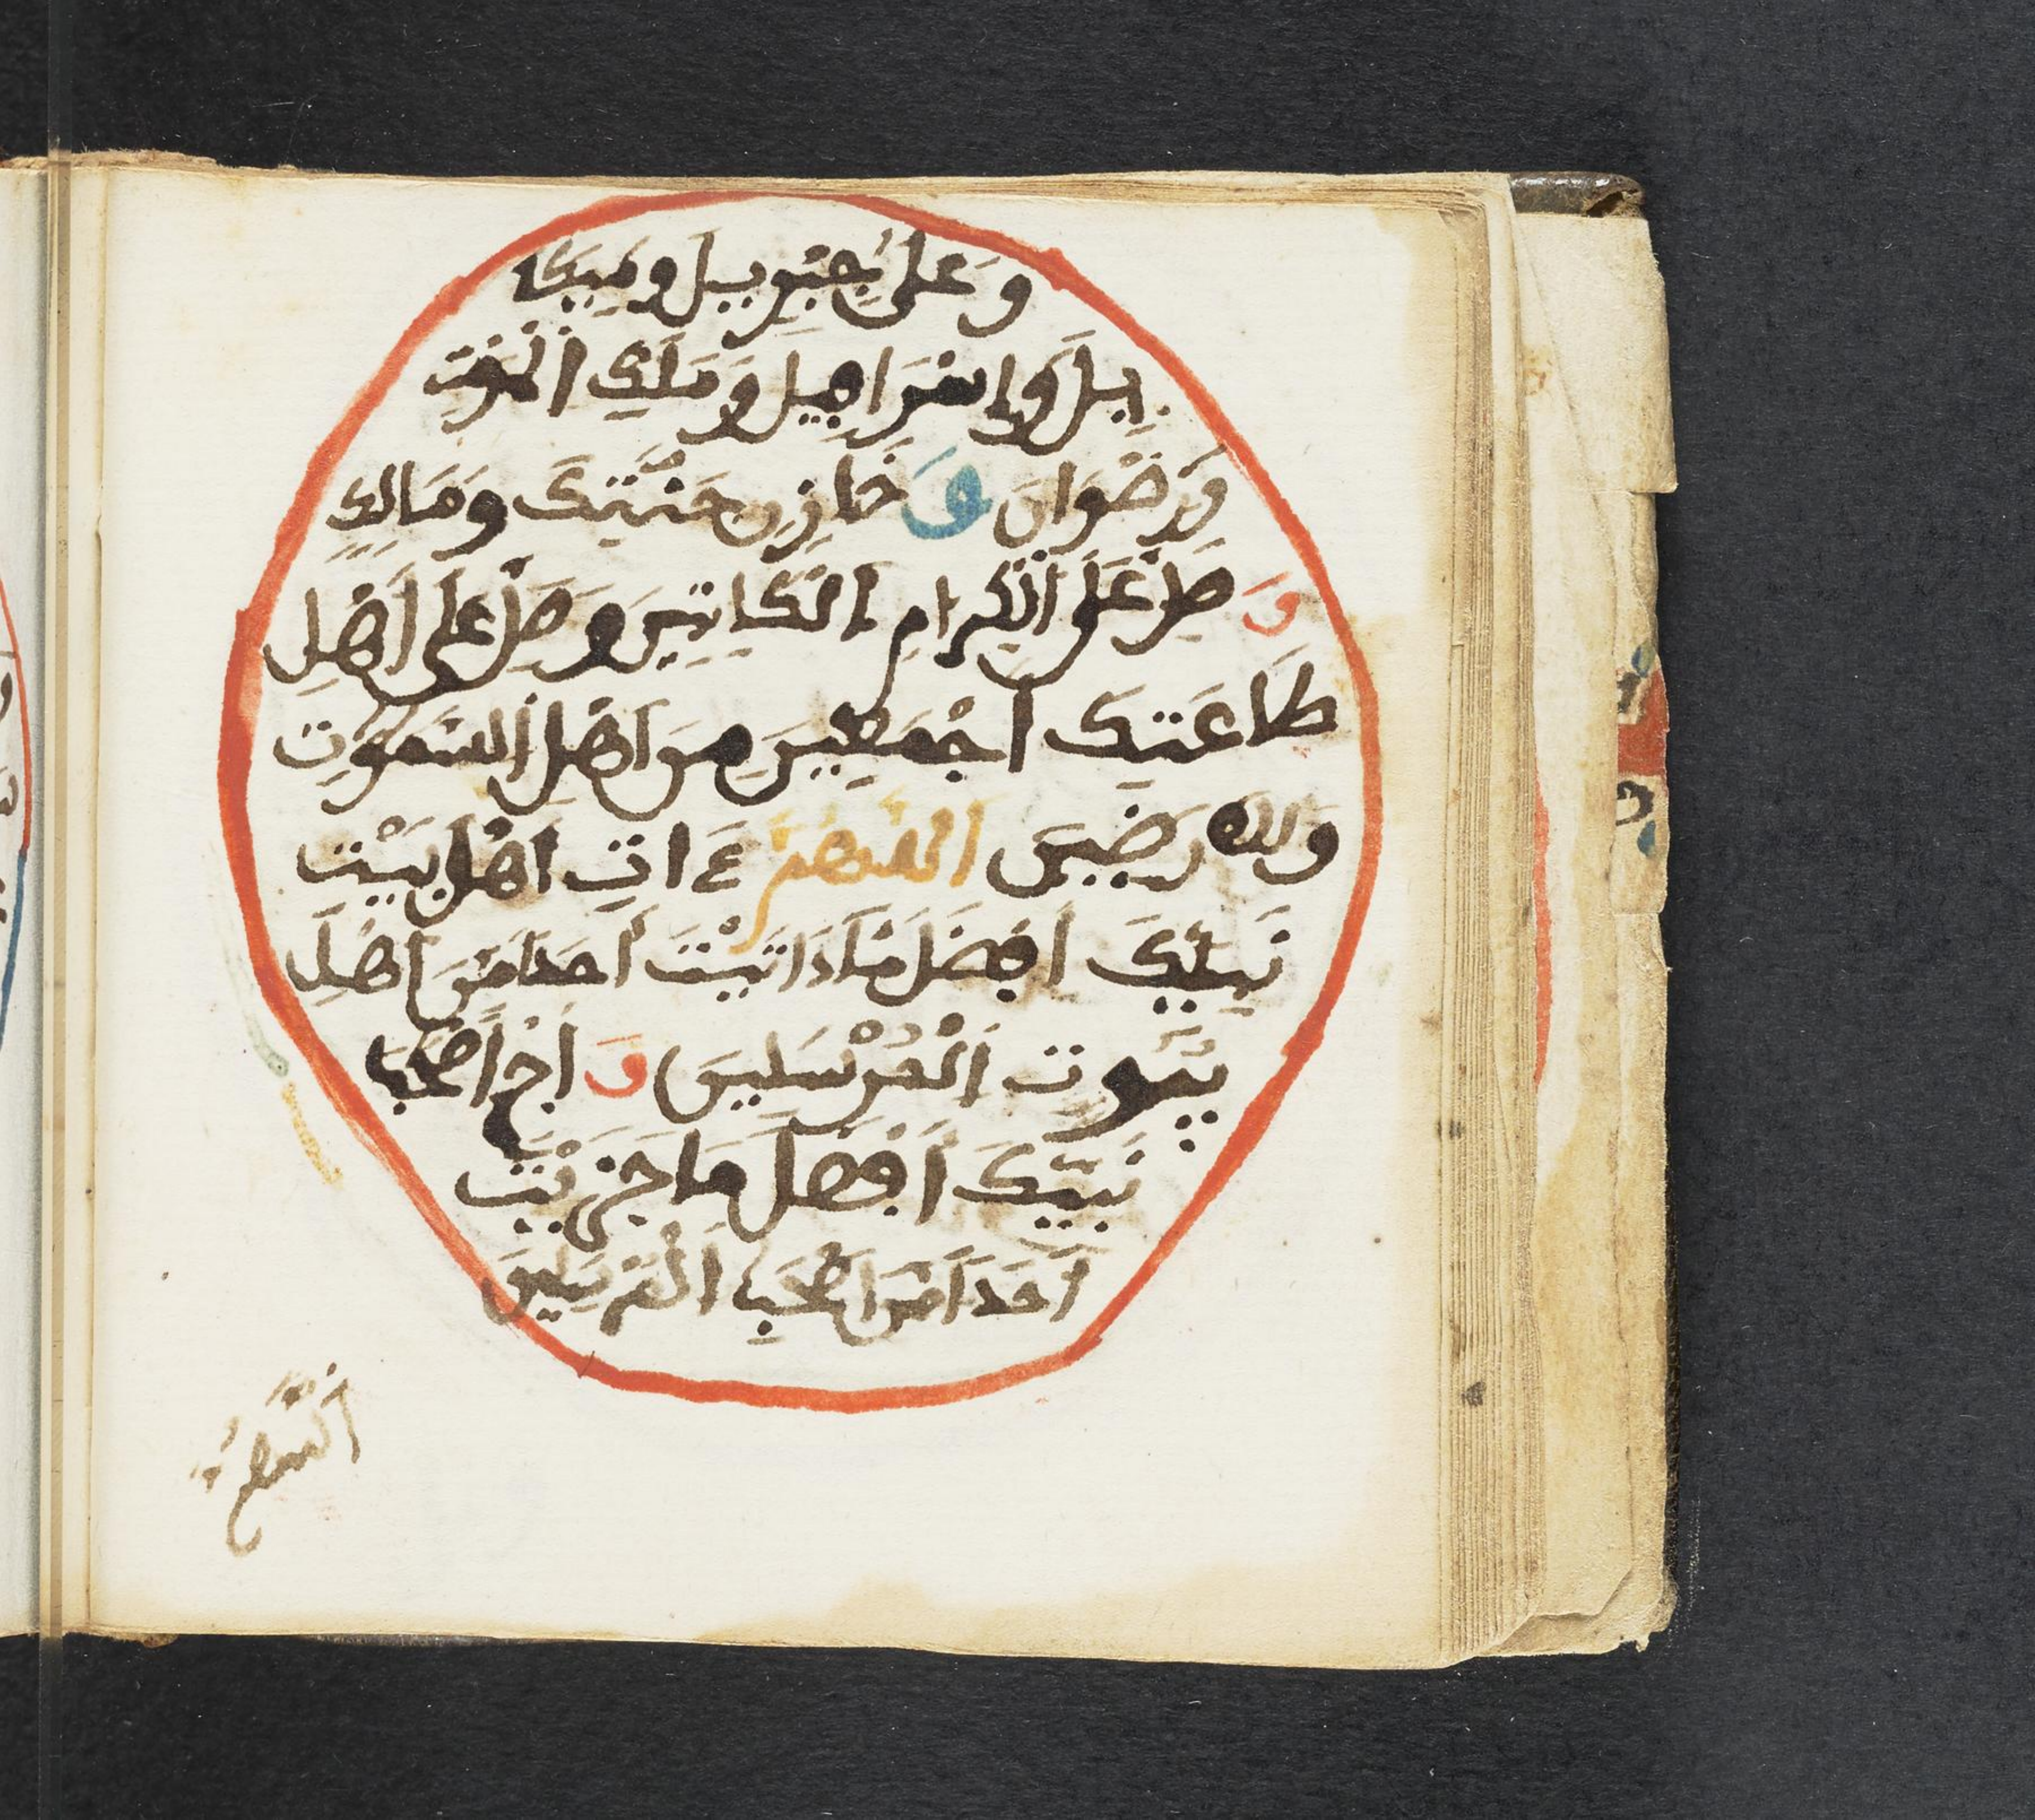 وَعَلى جِبْرِيلَ وَمِيكَا
بِيلَ وَإِسْرَافِيلَ وَمَلَكِ الْمَوْتِ
وَرِضْوَانَ وَ خَازِنِ جَنَّتِكَ وَمَالِكٍ
وَ صَلِّ عَلَى الْكِرَامِ الْكَاتِبِينَ وَصَلِّ عَلَى أَهْلِ
طَاعَتِكَ أَجْمَعِينَ مِنَ أَهْلِ السَّمَوَاتِ
وَالاَرَضِينَ اللَّهُمَّ ءَاتِ أَهْلَ بَيْتِ
نَبِيِّكَ أَفْضَلَ مَا ءَاتَيْتَ أَحَداً مِّنَ اَهْلِ
بُيُوتِ الْمُرْسَلِينَ وَ اجْزِ أَصْحَبَ
نَبِيِّكَ أَفْضَلَ مَا جَزَيْتَ
أَحَداً مِّنَ اَصْحَبِ الْمُرْسَلِينَ